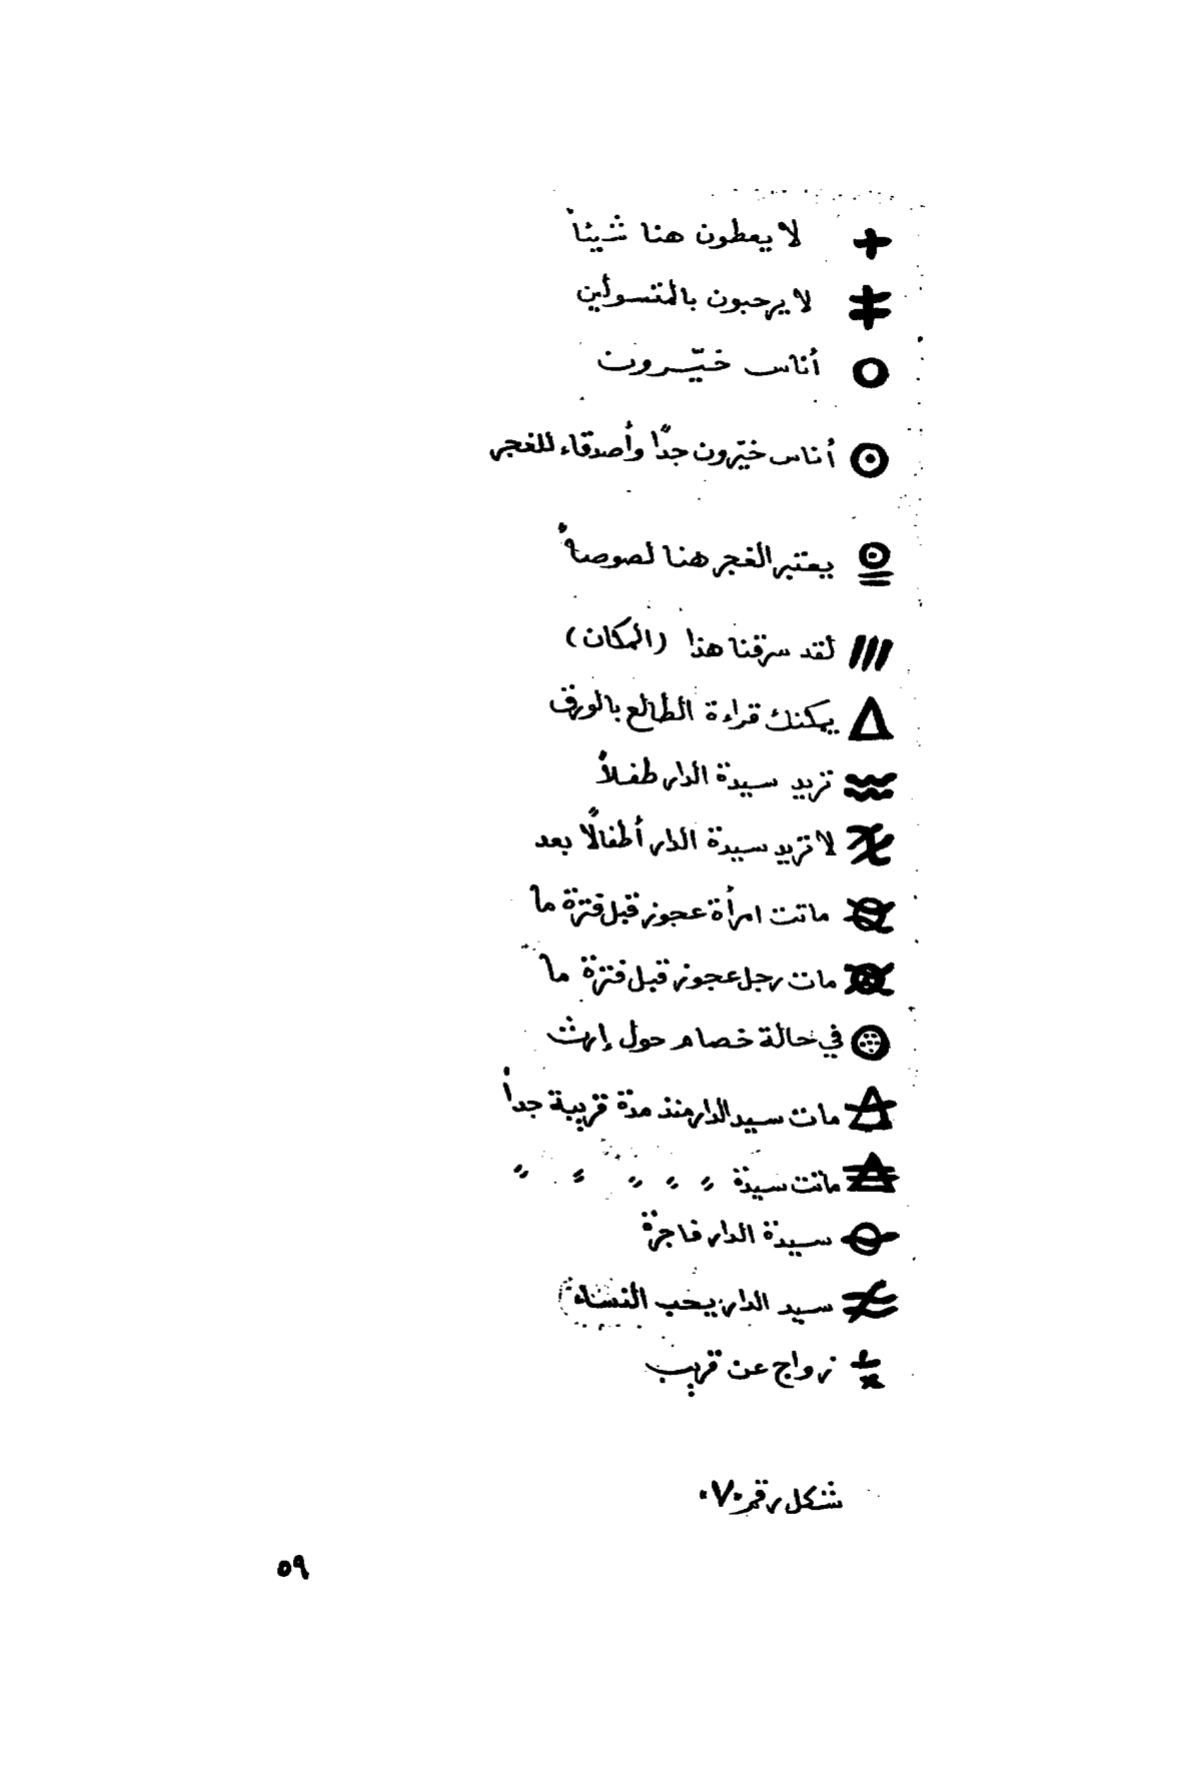 لا يعطون هنا شيئاً
لا يرحبون بالمتسولين
أناس خيّرون
أناس خيّرون جدًا وأصدقاء للغجر
يعتبر الغجر هنا لصوصاً
لقد سرقنا هذا (المكان)
يمكنك قراءة الطالع بالورق
تريد سيدة الدار طفلاً
لا تريد سيدة الدار أطفالًا بعد
ماتت امرأة عجوز قبل فترة ما
مات رجل عجوز قبل فترة ما
في حالة خصام حول إرث
مات سيد الدار منذ مدة قريبة جداً
ماتت سيدة " " " " "
سيدة الدار فاجرة
سيد الدار يحب النساء
زواج عن قريب
شكل رقم ٠٧٠
٥٩